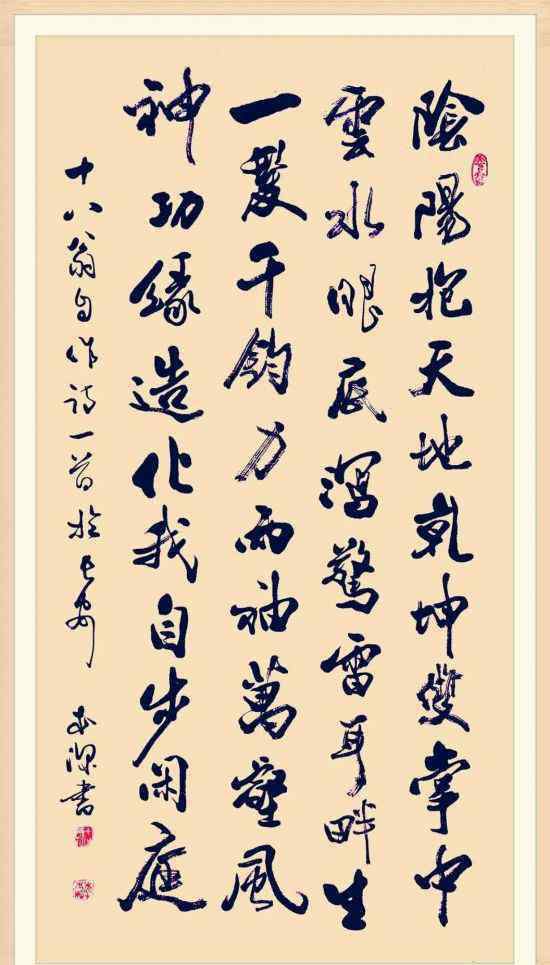 陰陽抱天地乾坤雙掌中
雲水眼底瀉驚雷耳畔生
一發千鈞力兩袖萬壑風
神功緣造化我自步閑庭
十八翁自作詩一首於長安
書